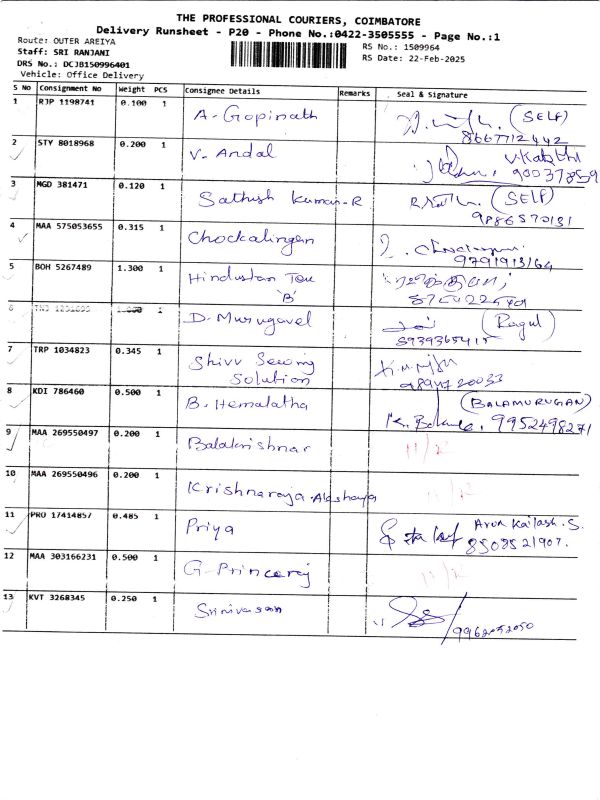 THE PROFESSIONAL COURIERS, COIMBATORE
Delivery Runsheet - P20 - Phone No.:0422-3505555 - Page No.:1
Route: OUTER AREIYA
Staff: SRI RANJANI
DRS No.: DCJB150996401
Vehicle: Office Delivery
RS No.: 1509964
RS Date: 22-Feb-2025
S No Consignment No Weight PCS Consignee Details Remarks Seal & Signature
1 RJP 1198741 0.100 1 A. Gopinath (SELF)
8667712442
2 STY 8018968 0.200 1 V. Andal
3 MGD 381471 0.120 1 Sathish Kumar-R (SELF)
9886570131
4 MAA 575053655 0.315 1 Chockalingam
9791913164
5 BOH 5267489 1.300 1 Hindustan
'B'
6 1 D. Murugavel (Ragul)
8939365415
7 TRP 1034823 0.345 1 Shivv Sewing
Solution
9894720033
8 KDI 786460 0.500 1 B. Hemalatha (BALAMURUGAN)
9952498271
9 MAA 269550497 0.200 1 Balakrishnan
10 MAA 269550496 0.200 1 Krishnaraja Akshaya
11 PRO 17414857 0.485 1 Priya Arun Kailash. S.
8508521907.
12 MAA 303166231 0.500 1 G. Princeraj
13 KVT 3268345 0.250 1 Srinivasan
9962052050